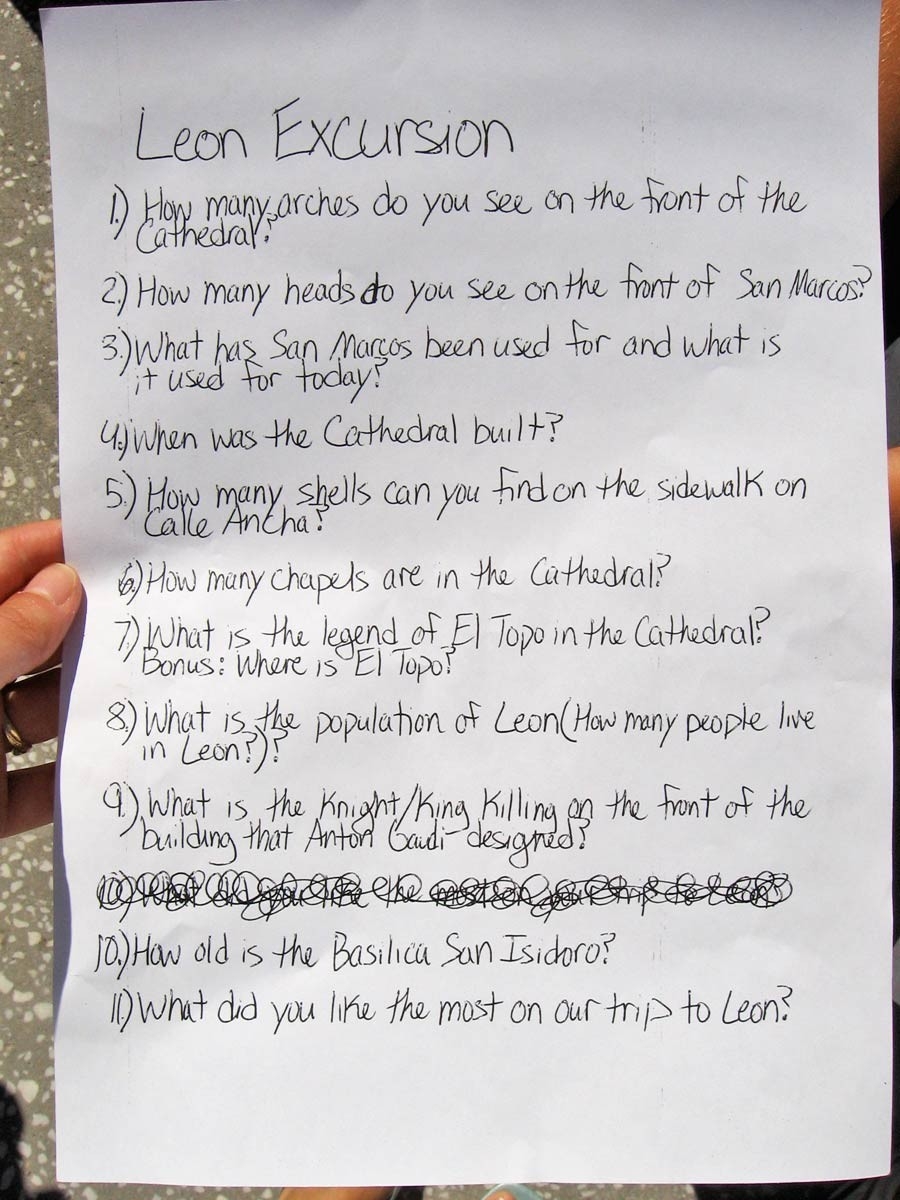 Leon Excursion
1.) How many arches do you see on the front of the
Cathedral?
2.) How many heads do you see on the front of San Marcos?
3.) What has San Marcos been used for and what is
it used for today?
4.) When was the Cathedral built?
5.) How many shells can you find on the sidewalk on
Calle Ancha?
6.) How many chapels are in the Cathedral?
7.) What is the legend of El Topo in the Cathedral?
Bonus: Where is El Topo?
8.) What is the population of Leon (How many people live
in Leon?)?
9.) What is the Knight/King Killing on the front of the
building that Anton Gaudi designed?
10.) What did you like the most on our trip to Leon?
10.) How old is the Basilica San Isidoro?
11.) What did you like the most on our trip to Leon?